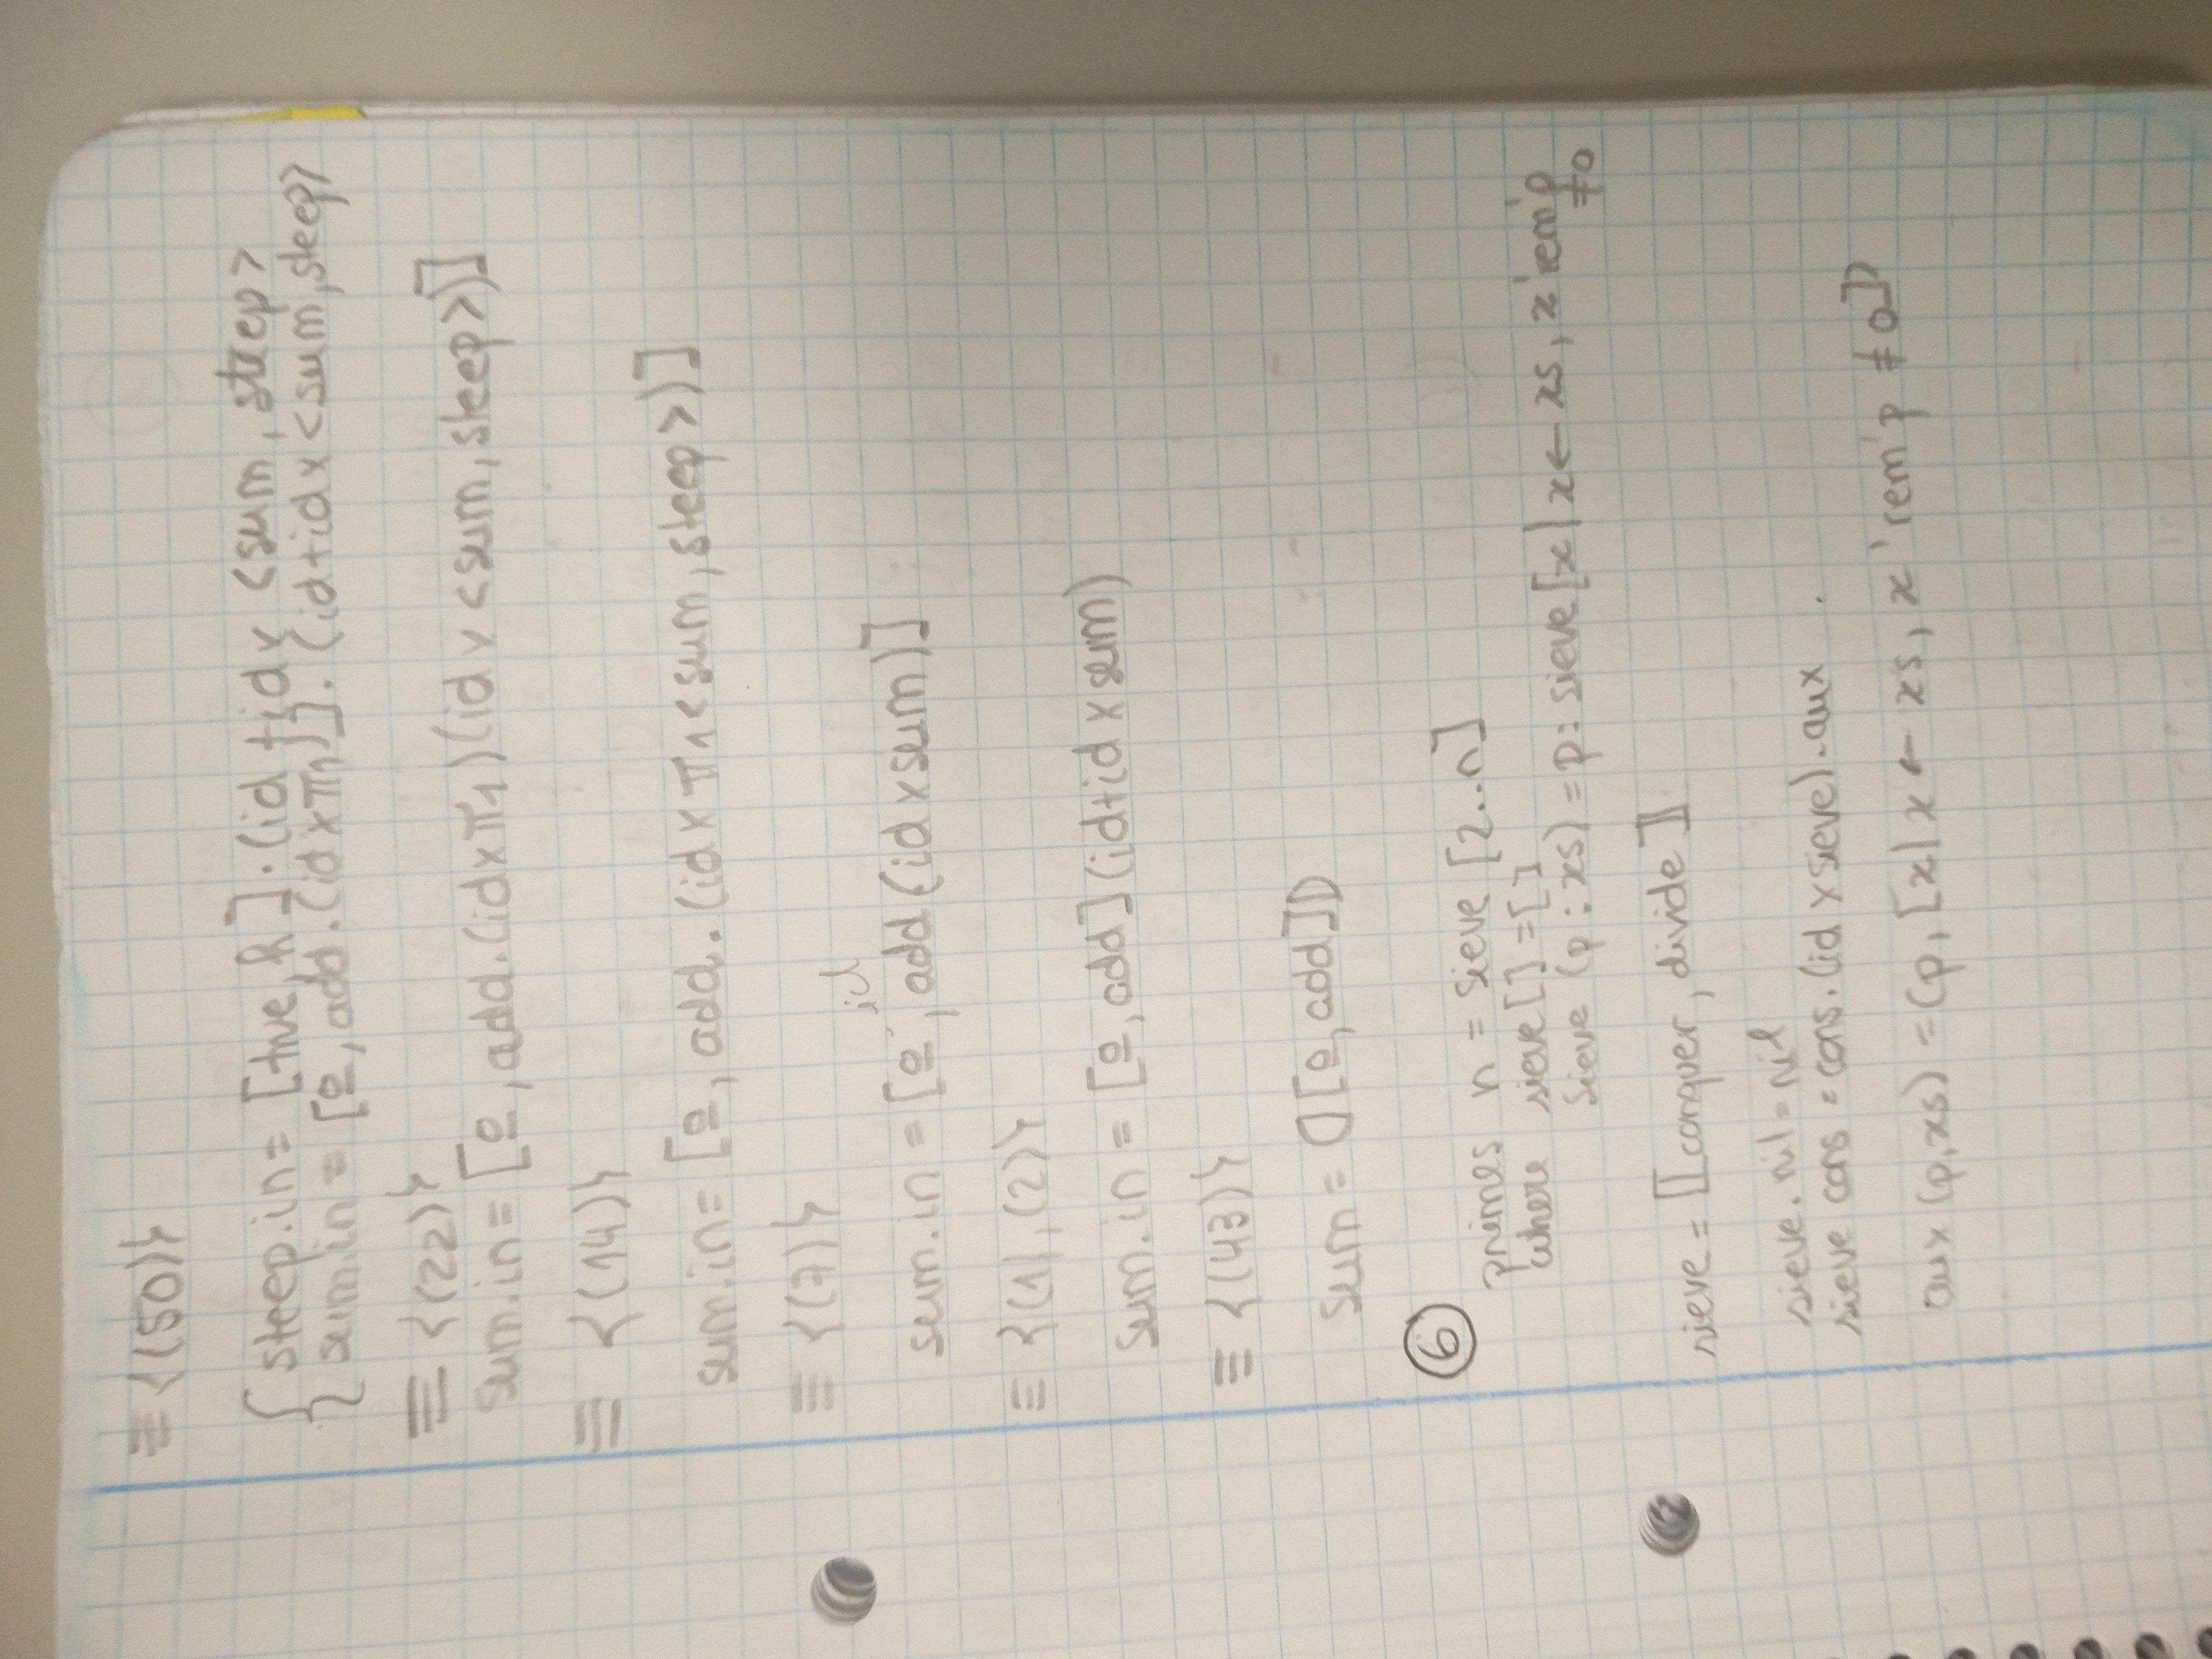 ≡ {(50)}
{ steep.in = [true, h] · (id + id × <sum, steep>
{ sum.in = [0, add.(id × π1)]. (id + id × <sum, steep>
≡ {(22)}
sum.in = [0, add.(id × π1)(id × <sum, steep>)]
≡ {(14)}
sum.in = [0, add. (id × π1 <sum, steep>)]
≡ {(7)}
.id
sum.in = [0, add (id × sum)]
≡ {(1), (2)}
sum.in = [0, add] (id + id × sum)
≡ {(43)}
sum = ⦇[0, add]⦈
⑥
primes n = sieve [2..n]
where sieve [] = []
sieve (p : xs) = p : sieve [x | x ← xs, x 'rem' p
≠ 0
sieve = ⟦conquer, divide⟧
sieve. nil = nil
sieve cons = cons. (id × sieve). aux
aux (p, xs) = (p, [x | x ← xs, x 'rem' p ≠ 0])